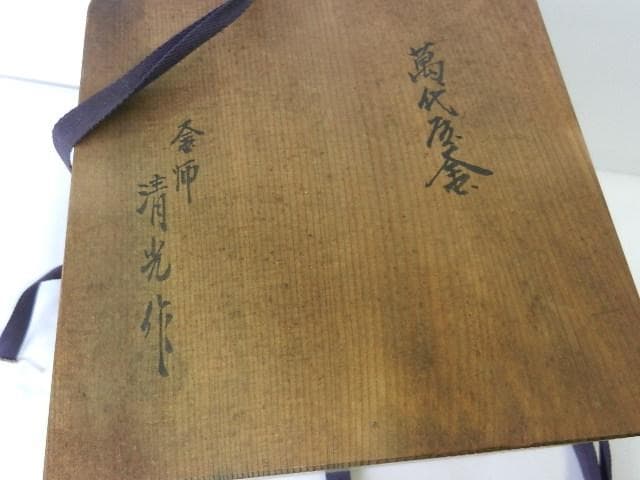 萬代屋釜
釜師
清光作